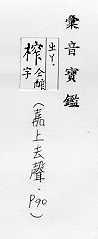 彙音寶鑑
出丫.
榨字
(嘉上去聲．P90)